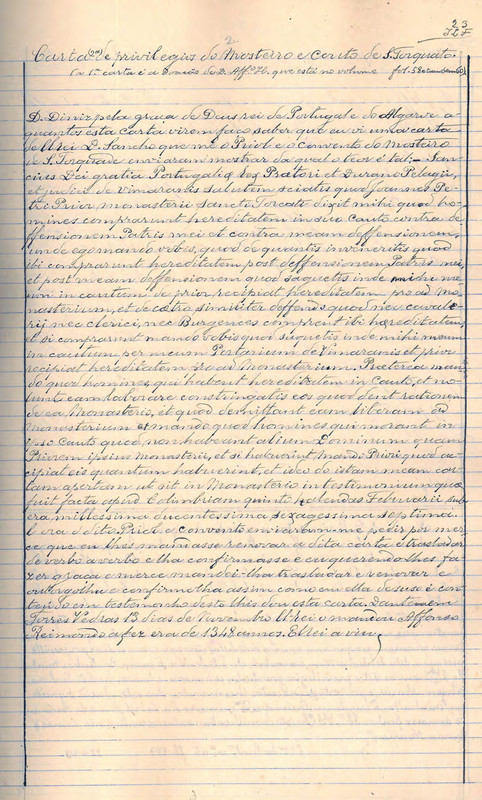 23
2
Carta (2ª) de privilegio do Mosteiro e Couto de S. Torquato.
(a 1ª carta é a Doação de D. Affº H. que está no volume fol. 58
D. Diniz pela graça de Deus rei de Portugal e do Algarve a
quantos esta carta virem faço saber que eu vi uma carta
de el Rei D. Sancho que me o Priol e o convento do Mosteiro
de S. Torquade enviaram mostrar da qual o teor é tal: — San-
cius Dei gratia Portugalis Rex Prætori et Durano Pelagii,
et judici de Vimaranis salutem sciatis quod Joannes Pe-
tri Prior monasterii Sancto Torcato dixit mihi quod ho-
mines comprarunt hereditatem in suo Cauto contra de-
ffensionem Patris mei et contra meam deffensionem,
unde ego mando vobis, quod de quantis inveneritis quod
ibi comprarunt hereditatem post deffensionem Patris mei,
et post meam deffensionem quod saquetis inde mihi me-
um in cautum et prior recipiat hereditatem pro ad Mo-
nasterium, et de cætro similiter deffendo quod nec cavale-
rij nec clerici, nec Burgences comprent ibi hereditatem,
et si comprarunt mando vobis quod saquetis inde mihi meum
in cautum per meum Portarium de Vimaranis et prior
recipiat hereditatem pro ad Monasterium. Præterea man-
do quod homines qui habent hereditatem in Cauto, et no-
lunt eam laborare constringatis eos quod dent rationem
de ea Monasterio, et quod demittant eam liberam ad
Monasterium et mando quod homines qui morant in
ipso Cauto quod non habeant alium Dominum quam
Priorem ipsius Monasterii, et si habuerint mando Priori quod ac-
cipiat eis quantum habuerint, et ideo do istam meam car-
tam apertam ut sit in Monasterio in testemonium quæ
fuit facta apud Columbriam quinto kalendas Februarii sub
era millessima ducentessima sexagessima septima.
E ora o dito Priol e Convento enviaram-me pedir por mer-
ce que eu lhes mandasse renovar a dita carta e trasladar
de verbo a verbo e lha confirmasse e eu querendo-lhes fa-
zer graça e merce mandei-lha trasladar e renovar e
outorgolha e confirmo-lha assim como em ella de suso é con-
teudo em testemonho desto lhis dou esta carta dante em
Torres Vedras 13 dias de Novembro el Rei o mandou Affonso
Reimondo a fez era de 1348 annos. El Rei a viu